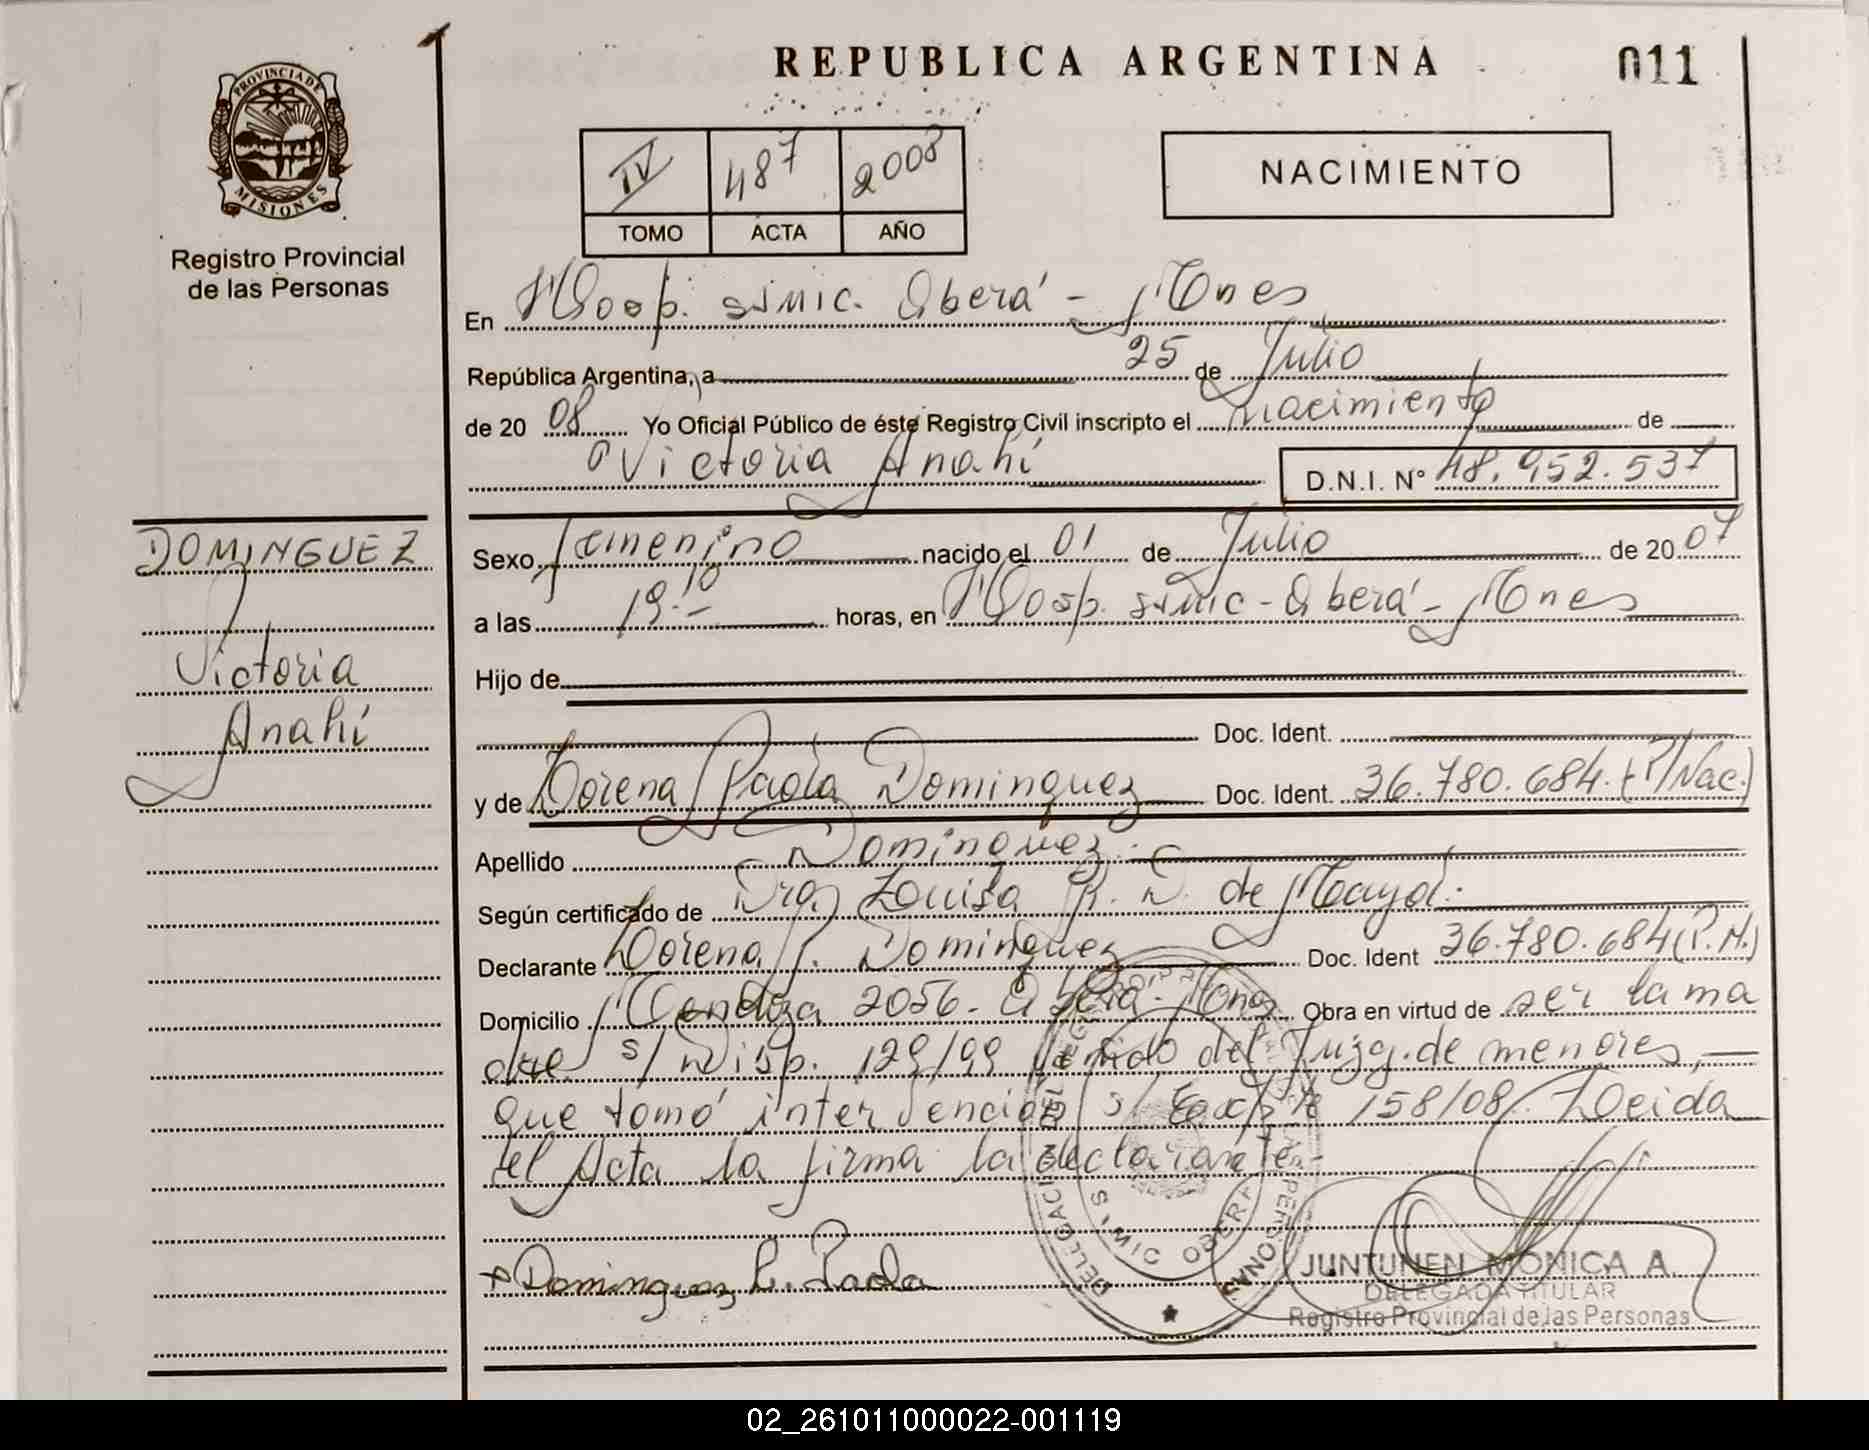 REPUBLICA ARGENTINA
011
PROVINCIA DE
MISIONES
Registro Provincial
de las Personas
IV 487 2008
TOMO ACTA AÑO
NACIMIENTO
En Hosp. SAMIC. Oberá - Mnes
República Argentina, a 25 de Julio
de 20 08 Yo Oficial Público de éste Registro Civil inscripto el nacimiento de
Victoria Anahí D.N.I. Nº 48.952.537
DOMINGUEZ
Victoria
Anahí
Sexo femenino nacido el 01 de Julio de 20 07
a las 19.10 horas, en Hosp. SAMIC - Oberá - Mnes
Hijo de
Doc. Ident.
y de Lorena Paola Dominguez Doc. Ident. 36.780.684. (P/Nac.)
Apellido Dominguez.
Según certificado de Dra. Louisa R. D. de Mayol.
Declarante Lorena P. Dominguez Doc. Ident 36.780.684 (P.N.)
Domicilio Mendoza 2056 - Oberá - Mnes Obra en virtud de ser la ma
dre s/ Disp. 129/99 del Juzg. de menores,
que tomó intervención s/ Expte 158/08. Leída
el Acta la firma la declarante.
Dominguez L. Paola
DELEGACION DEL REGISTRO PROVINCIAL DE LAS PERSONAS
SAMIC OBERA
JUNTUNEN MONICA A.
DELEGADA TITULAR
Registro Provincial de las Personas
02_261011000022-001119